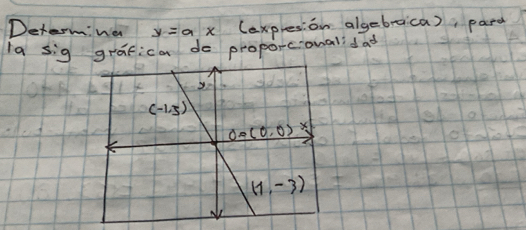 Determina y=a x (expresión algebraica), para
la sig gráfica de proporcionalidad
y
(-1,3)
0=(0,0) x
(1,-3)